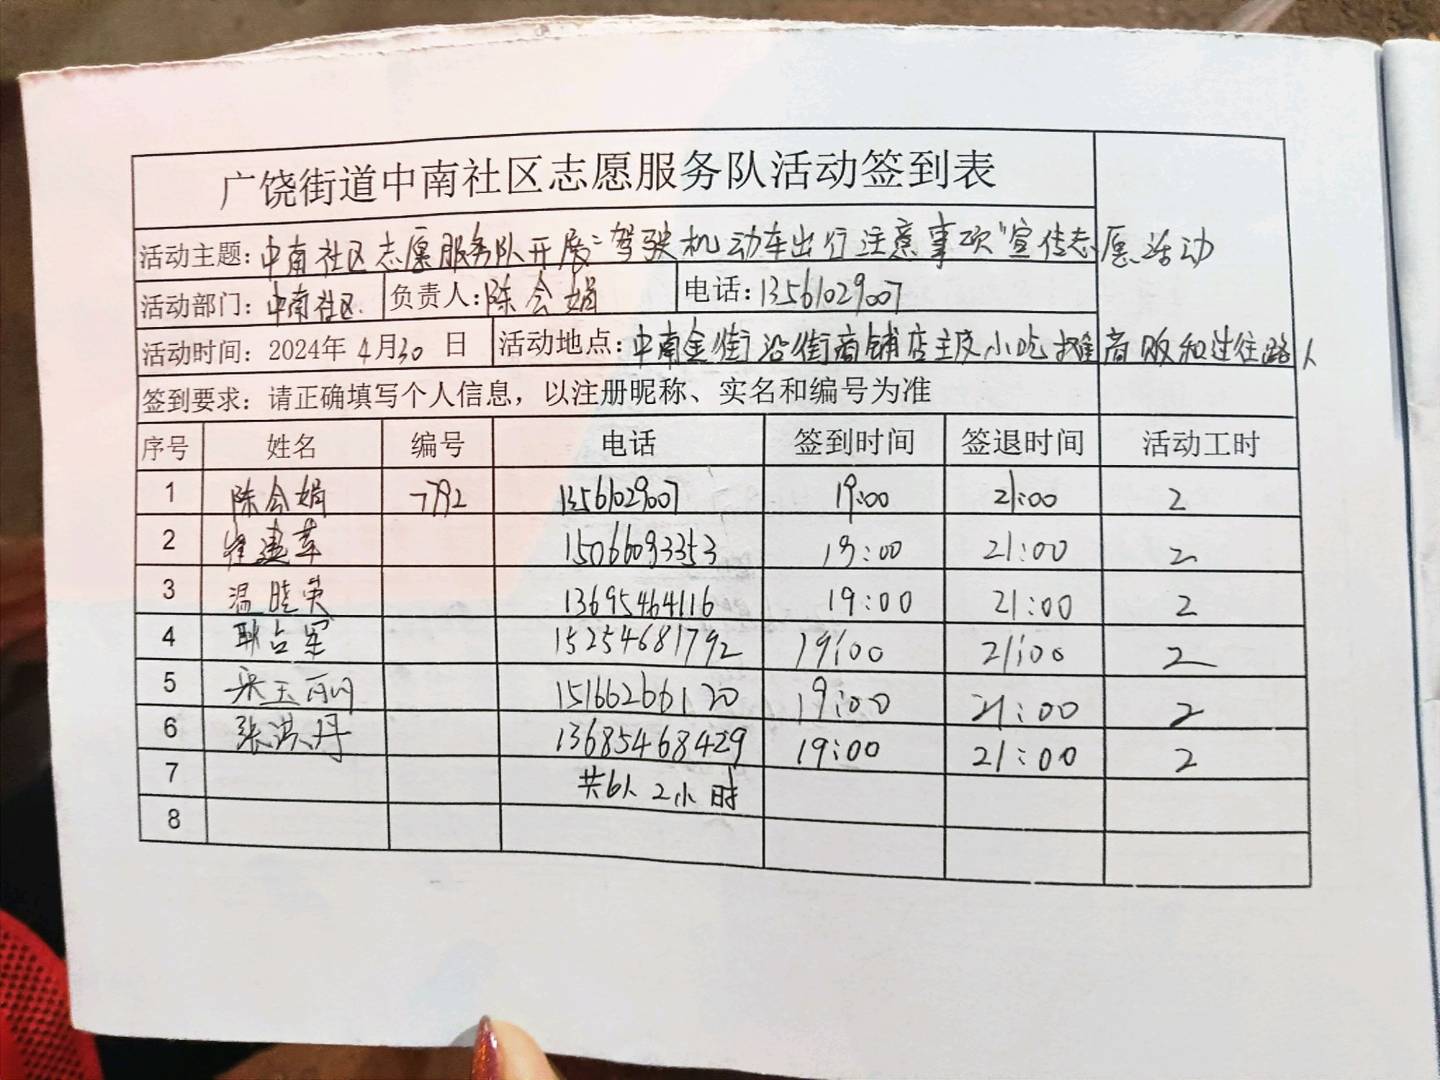 广饶街道中南社区志愿服务队活动签到表
活动主题:中南社区志愿服务队开展"驾驶机动车出行注意事项"宣传志愿活动
活动部门:中南社区 负责人:陈会娟 电话:13561029007
活动时间:2024年4月30日 活动地点:中南金街沿街商铺店主及小吃摊商贩和过往路人
签到要求:请正确填写个人信息，以注册昵称、实名和编号为准
序号 姓名 编号 电话 签到时间 签退时间 活动工时
1 陈会娟 7792 13561029007 19:00 21:00 2
2 崔建革 15066093353 19:00 21:00 2
3 温晓英 13695464116 19:00 21:00 2
4 耿占军 15254681792 19:00 21:00 2
5 宋玉丽 15166266120 19:00 21:00 2
6 张洪丹 13685468429 19:00 21:00 2
7 共6人 2小时
8